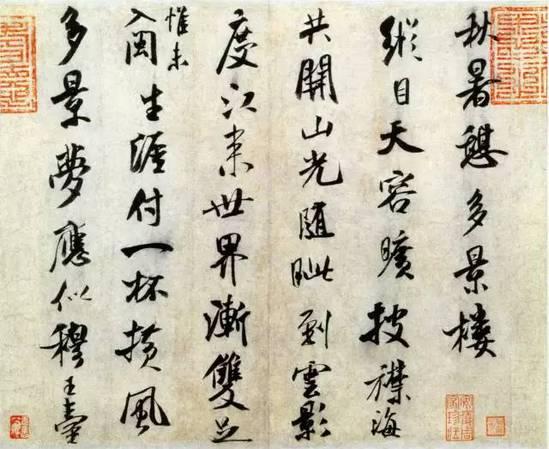 秋暑憩多景樓
縱目天容曠披襟海
共開山光隨眦到雲影
度江來世界漸雙足
惟未
入生涯付一杯橫風
多景夢應似穆王臺